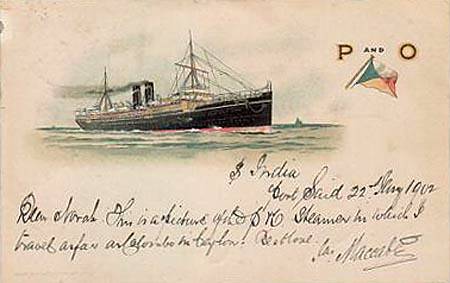 P AND O
S. India
Port Said 22d Aug 1902
Dear Norah This is a picture of the Steamer in which I
travel as far as Colombo in Ceylon.
Jas. Maccabe